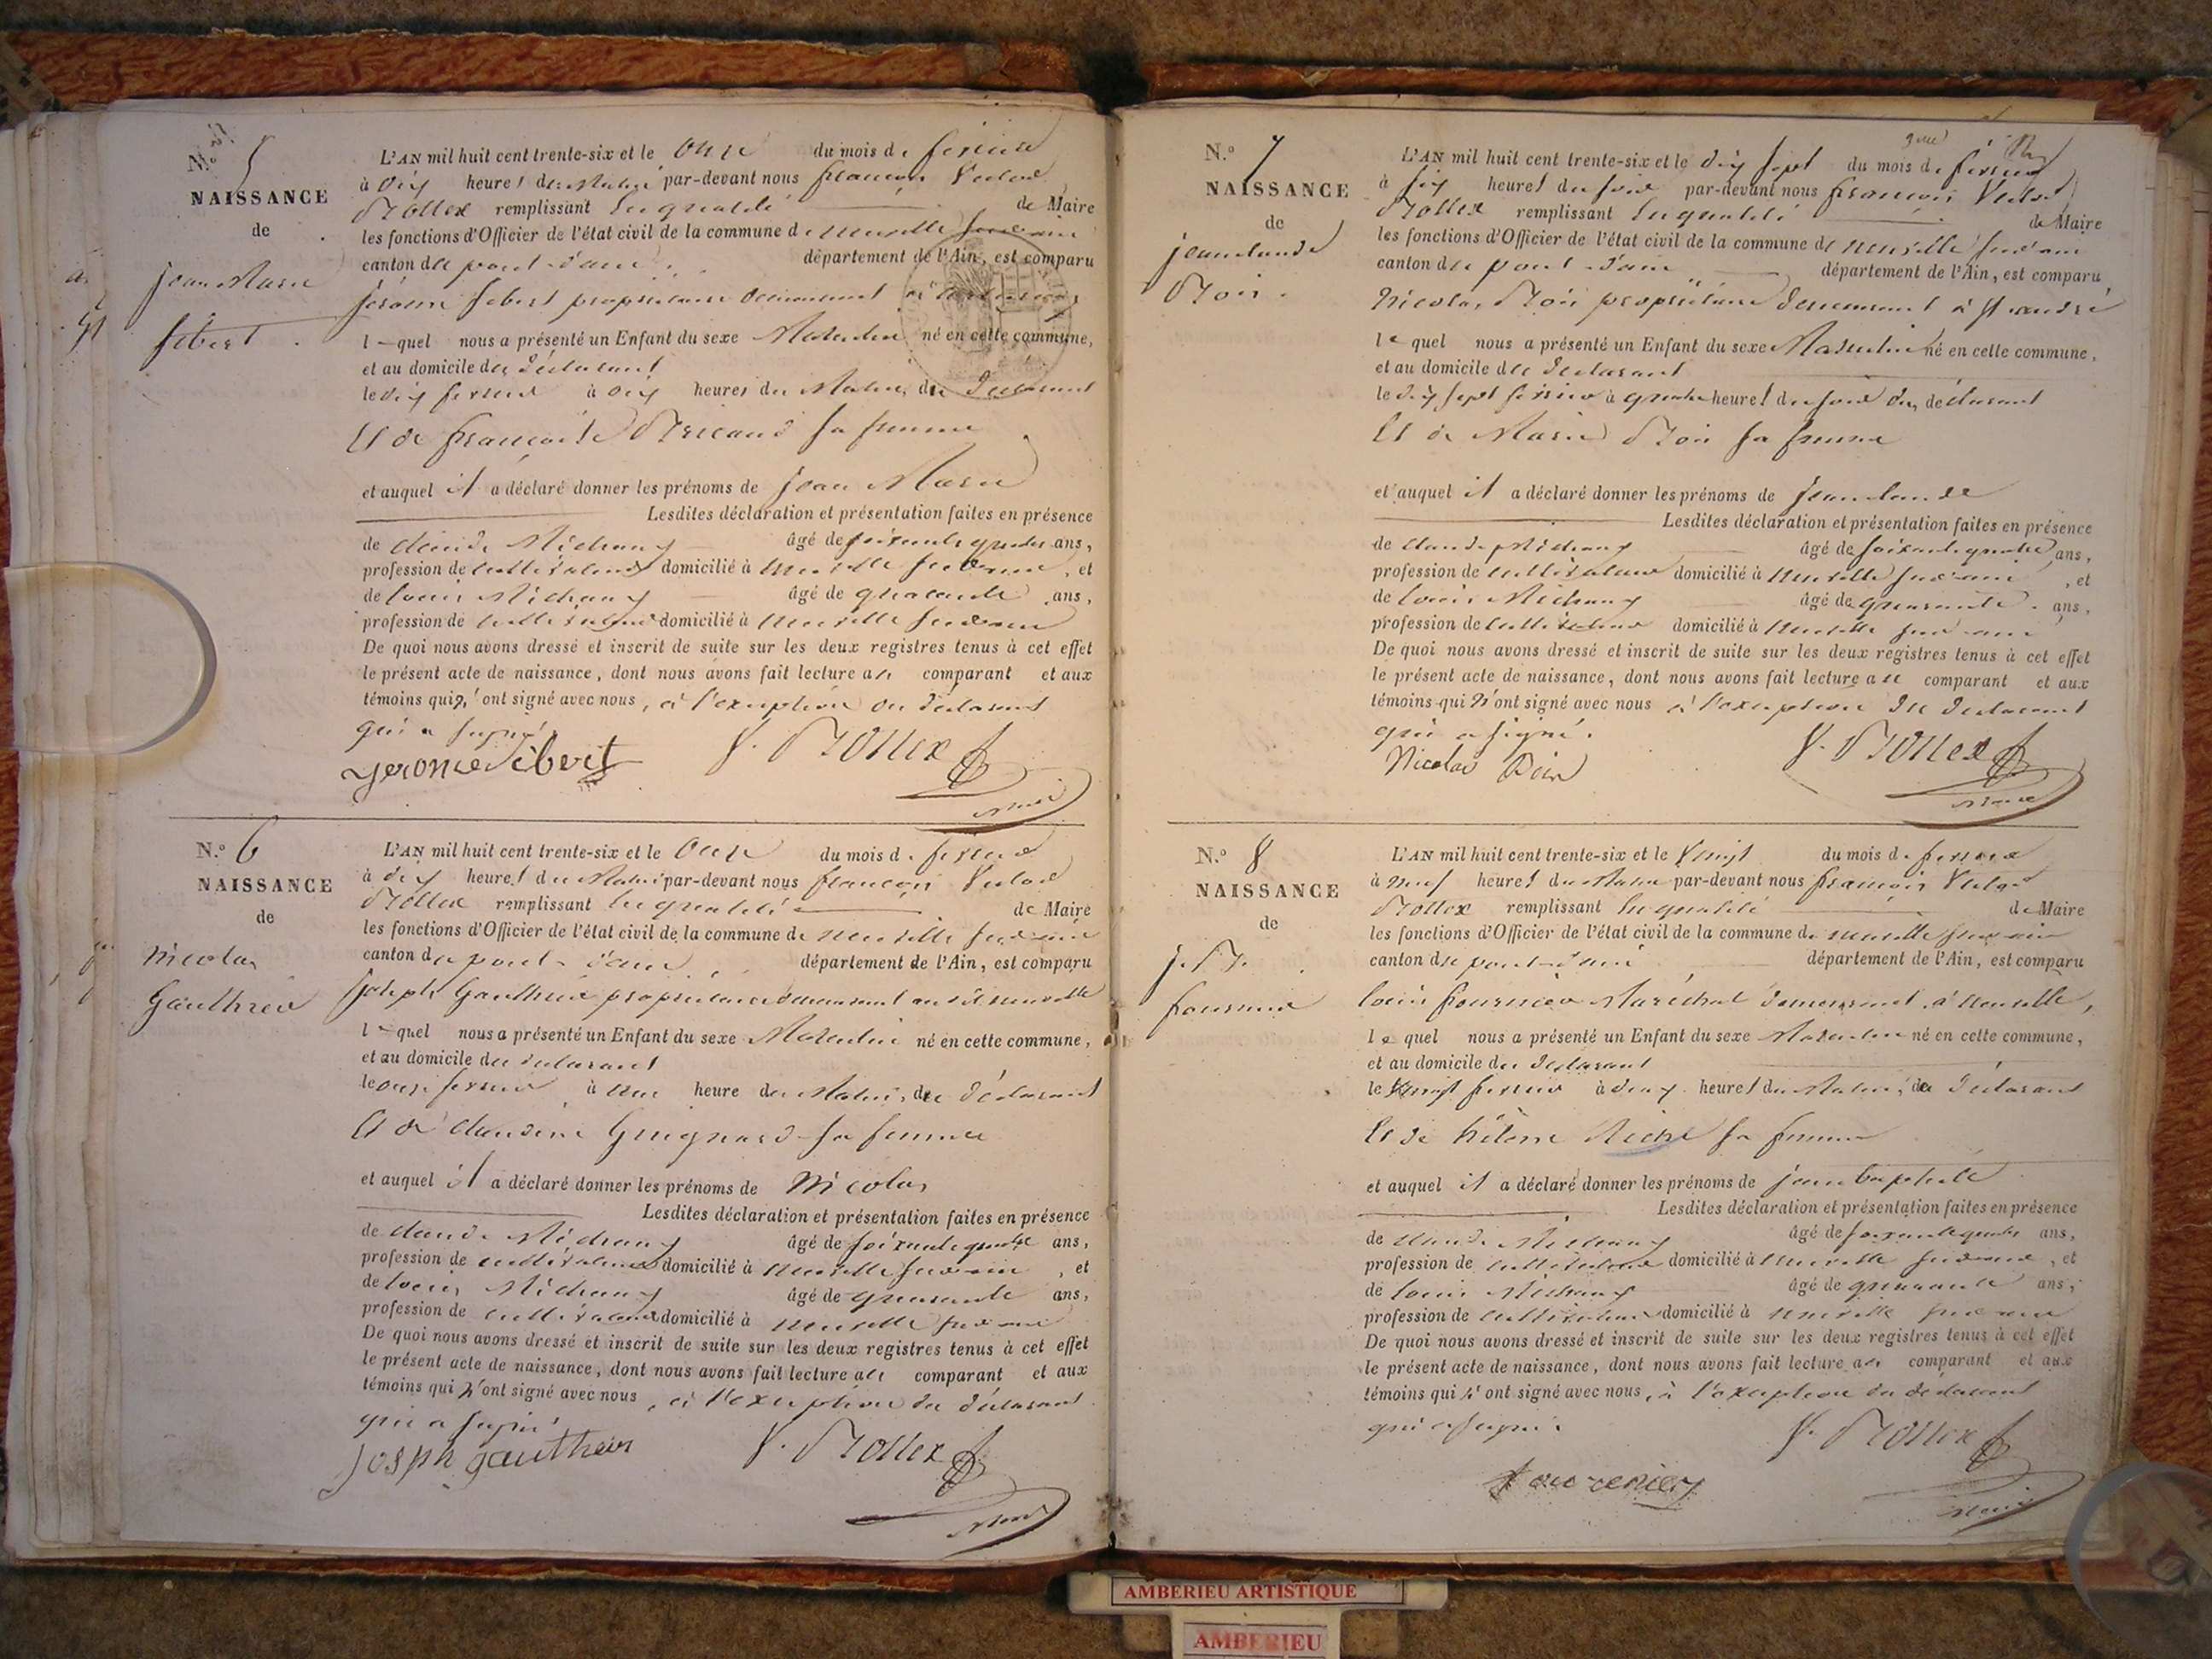 N.° 5
NAISSANCE
de
Jean Marie
Sibert
L'AN mil huit cent trente-six et le Onze du mois de fevrier
à dix heures du Matin par-devant nous françois Victor
remplissant en qualité de Maire
les fonctions d'Officier de l'état civil de la commune de neuville sur ain
canton de pont-d'ain département de l'Ain, est comparu
Jérôme Sibert propriétaire demeurant à
lequel nous a présenté un Enfant du sexe Masculin né en cette commune,
et au domicile du déclarant
le dix fevrier à dix heures du Matin, du déclarant
Et de françoise sa femme
et auquel il a déclaré donner les prénoms de Jean Marie
Lesdites déclaration et présentation faites en présence
de claude Michaux âgé de soixante quatre ans,
profession de cultivateur domicilié à neuville sur ain, et
de louis Michaux âgé de quarante ans,
profession de cultivateur domicilié à neuville sur ain
De quoi nous avons dressé et inscrit de suite sur les deux registres tenus à cet effet
le présent acte de naissance, dont nous avons fait lecture au comparant et aux
témoins qui n'ont signé avec nous, à l'exception du déclarant
qui a signé
Jerome Sibert
N.° 6
NAISSANCE
de
Nicolas
Gauthier
L'AN mil huit cent trente-six et le Onze du mois de fevrier
à dix heures du Matin par-devant nous françois Victor
remplissant en qualité de Maire
les fonctions d'Officier de l'état civil de la commune de neuville sur ain
canton de pont-d'ain département de l'Ain, est comparu
Joseph Gauthier propriétaire demeurant au dit neuville
lequel nous a présenté un Enfant du sexe Masculin né en cette commune,
et au domicile du déclarant
le onze fevrier à une heure du Matin, du déclarant
Et de claudine Guignard sa femme
et auquel il a déclaré donner les prénoms de Nicolas
Lesdites déclaration et présentation faites en présence
de claude Michaux âgé de soixante quatre ans,
profession de cultivateur domicilié à neuville sur ain, et
de louis Michaux âgé de quarante ans,
profession de cultivateur domicilié à neuville sur ain
De quoi nous avons dressé et inscrit de suite sur les deux registres tenus à cet effet
le présent acte de naissance, dont nous avons fait lecture au comparant et aux
témoins qui n'ont signé avec nous, à l'exception du déclarant
qui a signé
Josph gautheir
N.° 7
NAISSANCE
de
jean claude
L'AN mil huit cent trente-six et le dix sept du mois de fevrier
à six heures du soir par-devant nous françois Victor
remplissant en qualité de Maire
les fonctions d'Officier de l'état civil de la commune de neuville sur ain
canton de pont-d'ain département de l'Ain, est comparu
Nicolas propriétaire demeurant à St andré
lequel nous a présenté un Enfant du sexe Masculin né en cette commune,
et au domicile du déclarant
le dix sept fevrier à quatre heures du soir du déclarant
Et de Marie sa femme
et auquel il a déclaré donner les prénoms de jean claude
Lesdites déclaration et présentation faites en présence
de claude Michaux âgé de soixante quatre ans,
profession de cultivateur domicilié à neuville sur ain, et
de louis Michaux âgé de quarante ans,
profession de cultivateur domicilié à neuville sur ain
De quoi nous avons dressé et inscrit de suite sur les deux registres tenus à cet effet
le présent acte de naissance, dont nous avons fait lecture au comparant et aux
témoins qui n'ont signé avec nous à l'exception du déclarant
qui a signé.
Nicolas
N.° 8
NAISSANCE
de
j. B.
fournier
L'AN mil huit cent trente-six et le Vingt du mois de fevrier
à neuf heures du Matin par-devant nous françois Victor
remplissant en qualité de Maire
les fonctions d'Officier de l'état civil de la commune de neuville sur ain
canton de pont-d'ain département de l'Ain, est comparu
louis fournier Maréchal demeurant à neuville,
lequel nous a présenté un Enfant du sexe Masculin né en cette commune,
et au domicile du déclarant
le Vingt fevrier à deux heures du Matin, du déclarant
Et de hélène sa femme
et auquel il a déclaré donner les prénoms de jean baptiste
Lesdites déclaration et présentation faites en présence
de claude Michaux âgé de soixante quatre ans,
profession de cultivateur domicilié à neuville sur ain, et
de louis Michaux âgé de quarante ans,
profession de cultivateur domicilié à neuville sur ain
De quoi nous avons dressé et inscrit de suite sur les deux registres tenus à cet effet
le présent acte de naissance, dont nous avons fait lecture au comparant et aux
témoins qui n'ont signé avec nous, à l'exception du déclarant
qui a signé.
AMBERIEU ARTISTIQUE
AMBERIEU